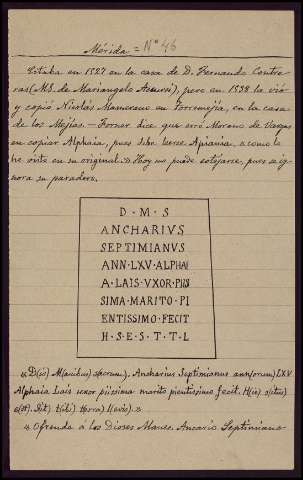 Mérida = Nº 46
Estaba en 1527 en la casa de D. Fernando Contre-
ras (M.S. de Mariangelo Accursi), pero en 1538 la vió
y copió Nicolás Mamerano en Torremejía, en la casa
de los Mejías. — Forner dice que erró Moreno de Vargas
en copiar Alphaia, pues debe leerse Apiania, como la
he visto en su original. Hoy no puede cotejarse, pues se ig-
nora su paradero.
D · M · S
ANCHARIVS
SEPTIMIANVS
ANN · LXV · ALPHAI
A · LAIS · VXOR · PIIS
SIMA · MARITO · PI
ENTISSIMO · FECIT
H · S · E · S · T · T · L
« D(is) M(anibus) s(acrum). Ancharius Septimianus ann(orum) LXV
Alphaia Lais uxor piissima marito pientissimo fecit. H(ic) s(itus)
e(st). S(it) t(ibi) t(erra) l(evis). »
« Ofrenda á los Dioses Manes. Ancario Septimiano